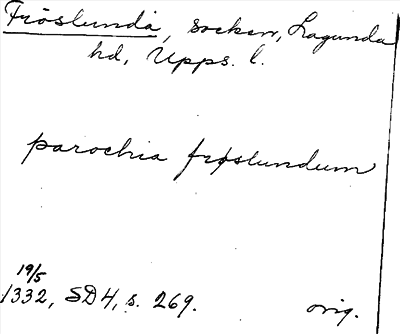 Fröslunda, socken, Lagunda
hd, Upps. l.
parochia frøslundum
19/5
1332, SD4, s. 269.
orig.